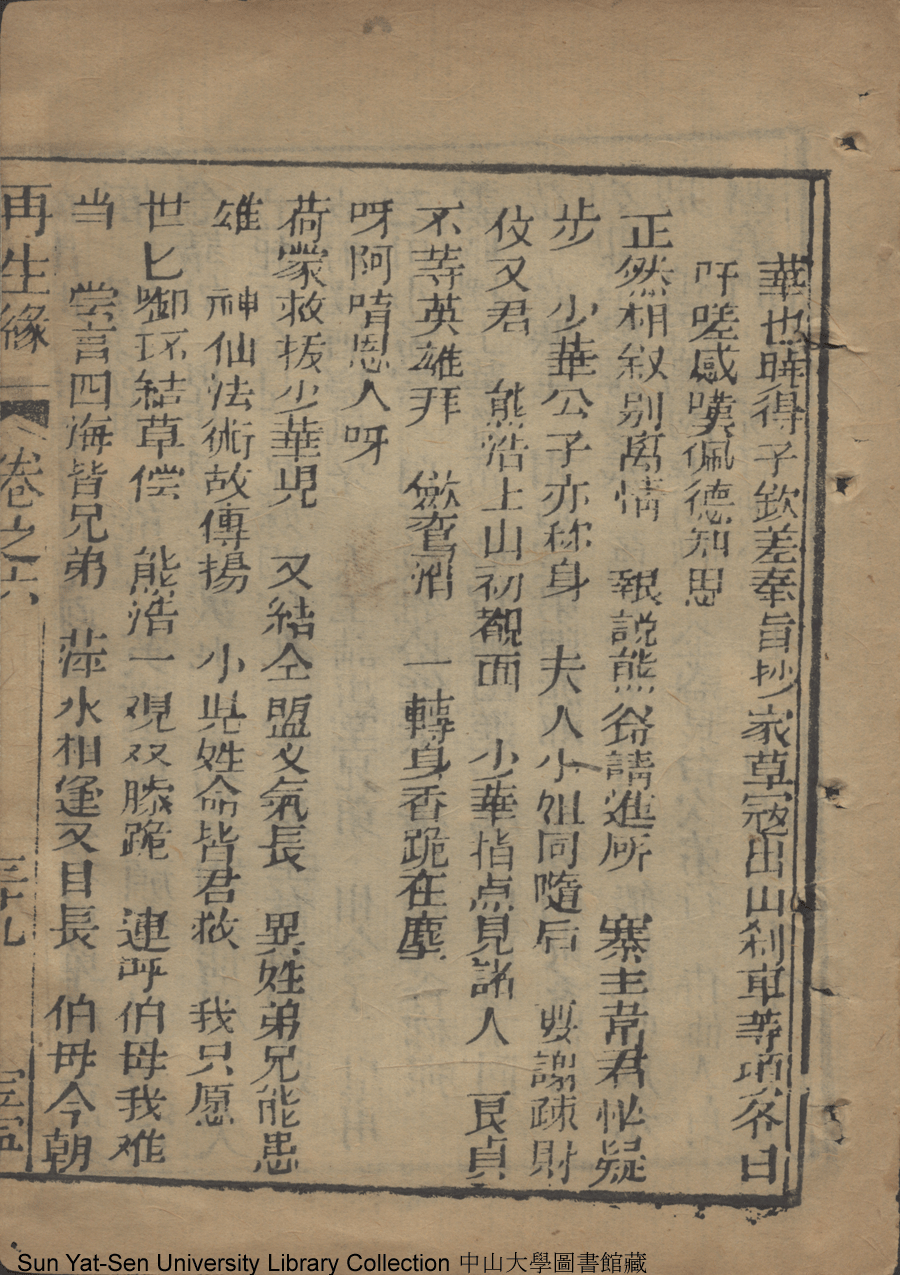 華也時得子欽差奉旨抄家草寇出山刹車等項各曰
吁嗟感嘆佩德知思
正然相叙别离情　報說熊爺請進所　寨主韋君怭疑
步　少華公子亦称身　夫人小姐同隨后　要謝疎財
仗又君　熊浩上山初觀面　少華指点見諸人　良貞
不等英雄拜　一轉身香跪在塵
呀阿唷恩人呀
荷蒙救拔少華児　又結仝盟义氣長　異姓弟兄能患
雄　神仙法術故傳揚　小児姓命皆君救　我只愿
世匕啣环結草偿　熊浩一观双膝跪　連呼伯母我难
当　尝言四海皆兄弟　萍水相逢又目長　伯母今朝
再生緣　卷之六　三十九
Sun Yat-Sen University Library Collection 中山大學圖書館藏